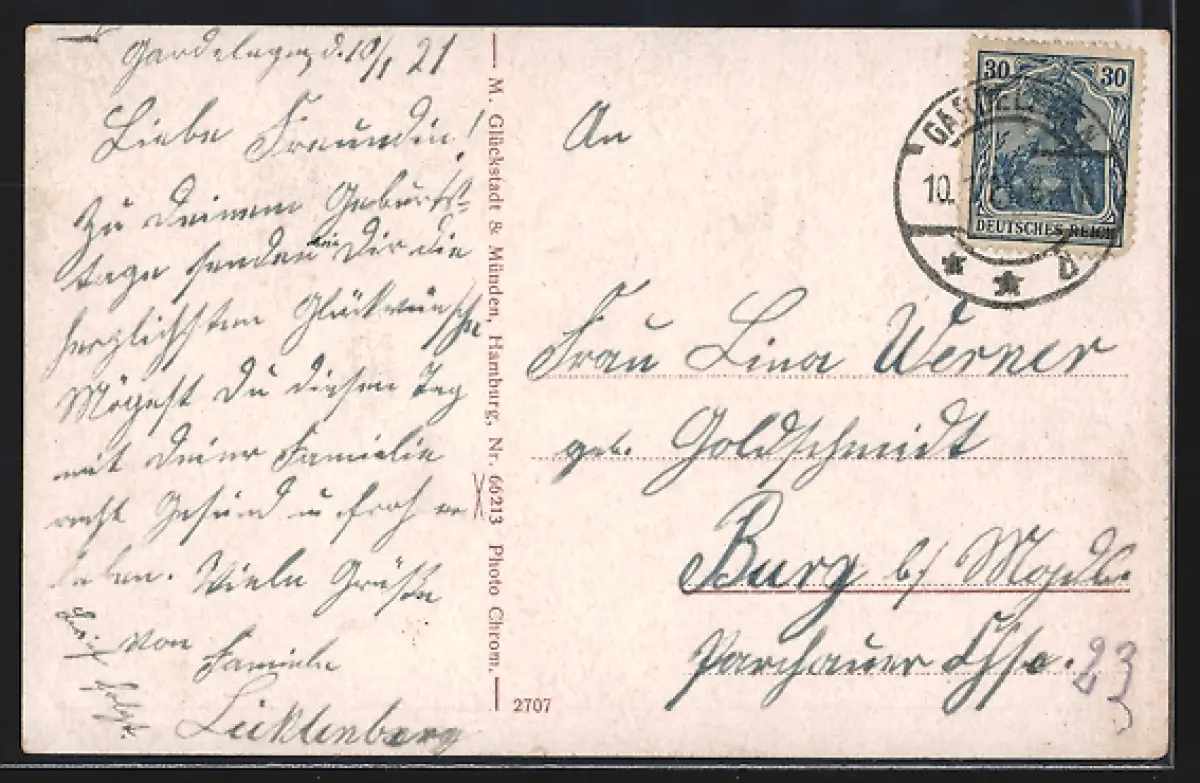 Gardelegen d. 10/1 21
Liebe Freundin!
Zu Deinem Geburts-
tage senden wir Dir die
herzlichsten Glückwünsche
Mögest Du diesen Tag
mit Deiner Familie
recht Gesund u froh er
leben. Viele Grüße
von
Familie
Lücktenberg
Brief
folgt
M. Glückstadt & Münden, Hamburg, Nr. 66213 Photo Chrom.
2707
An
Frau Lina Werner
geb. Goldschmidt
Burg b/ Magdb.
Parchauer Chse. 23
30 30
DEUTSCHES REICH
GARDELEGEN
10.